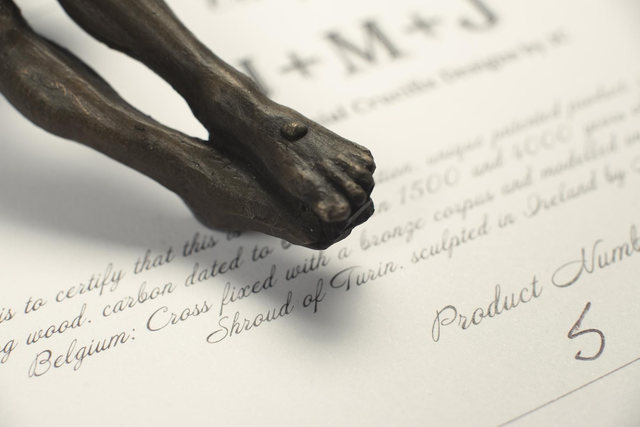 +M+J
Crucifix Designs by
is to certify that this is unique patented product
wood, carbon dated to 1500 and 4000 years
Belgium: Cross fixed with a bronze corpus and modelled
Shroud of Turin, sculpted in Ireland by
Product Numb
5